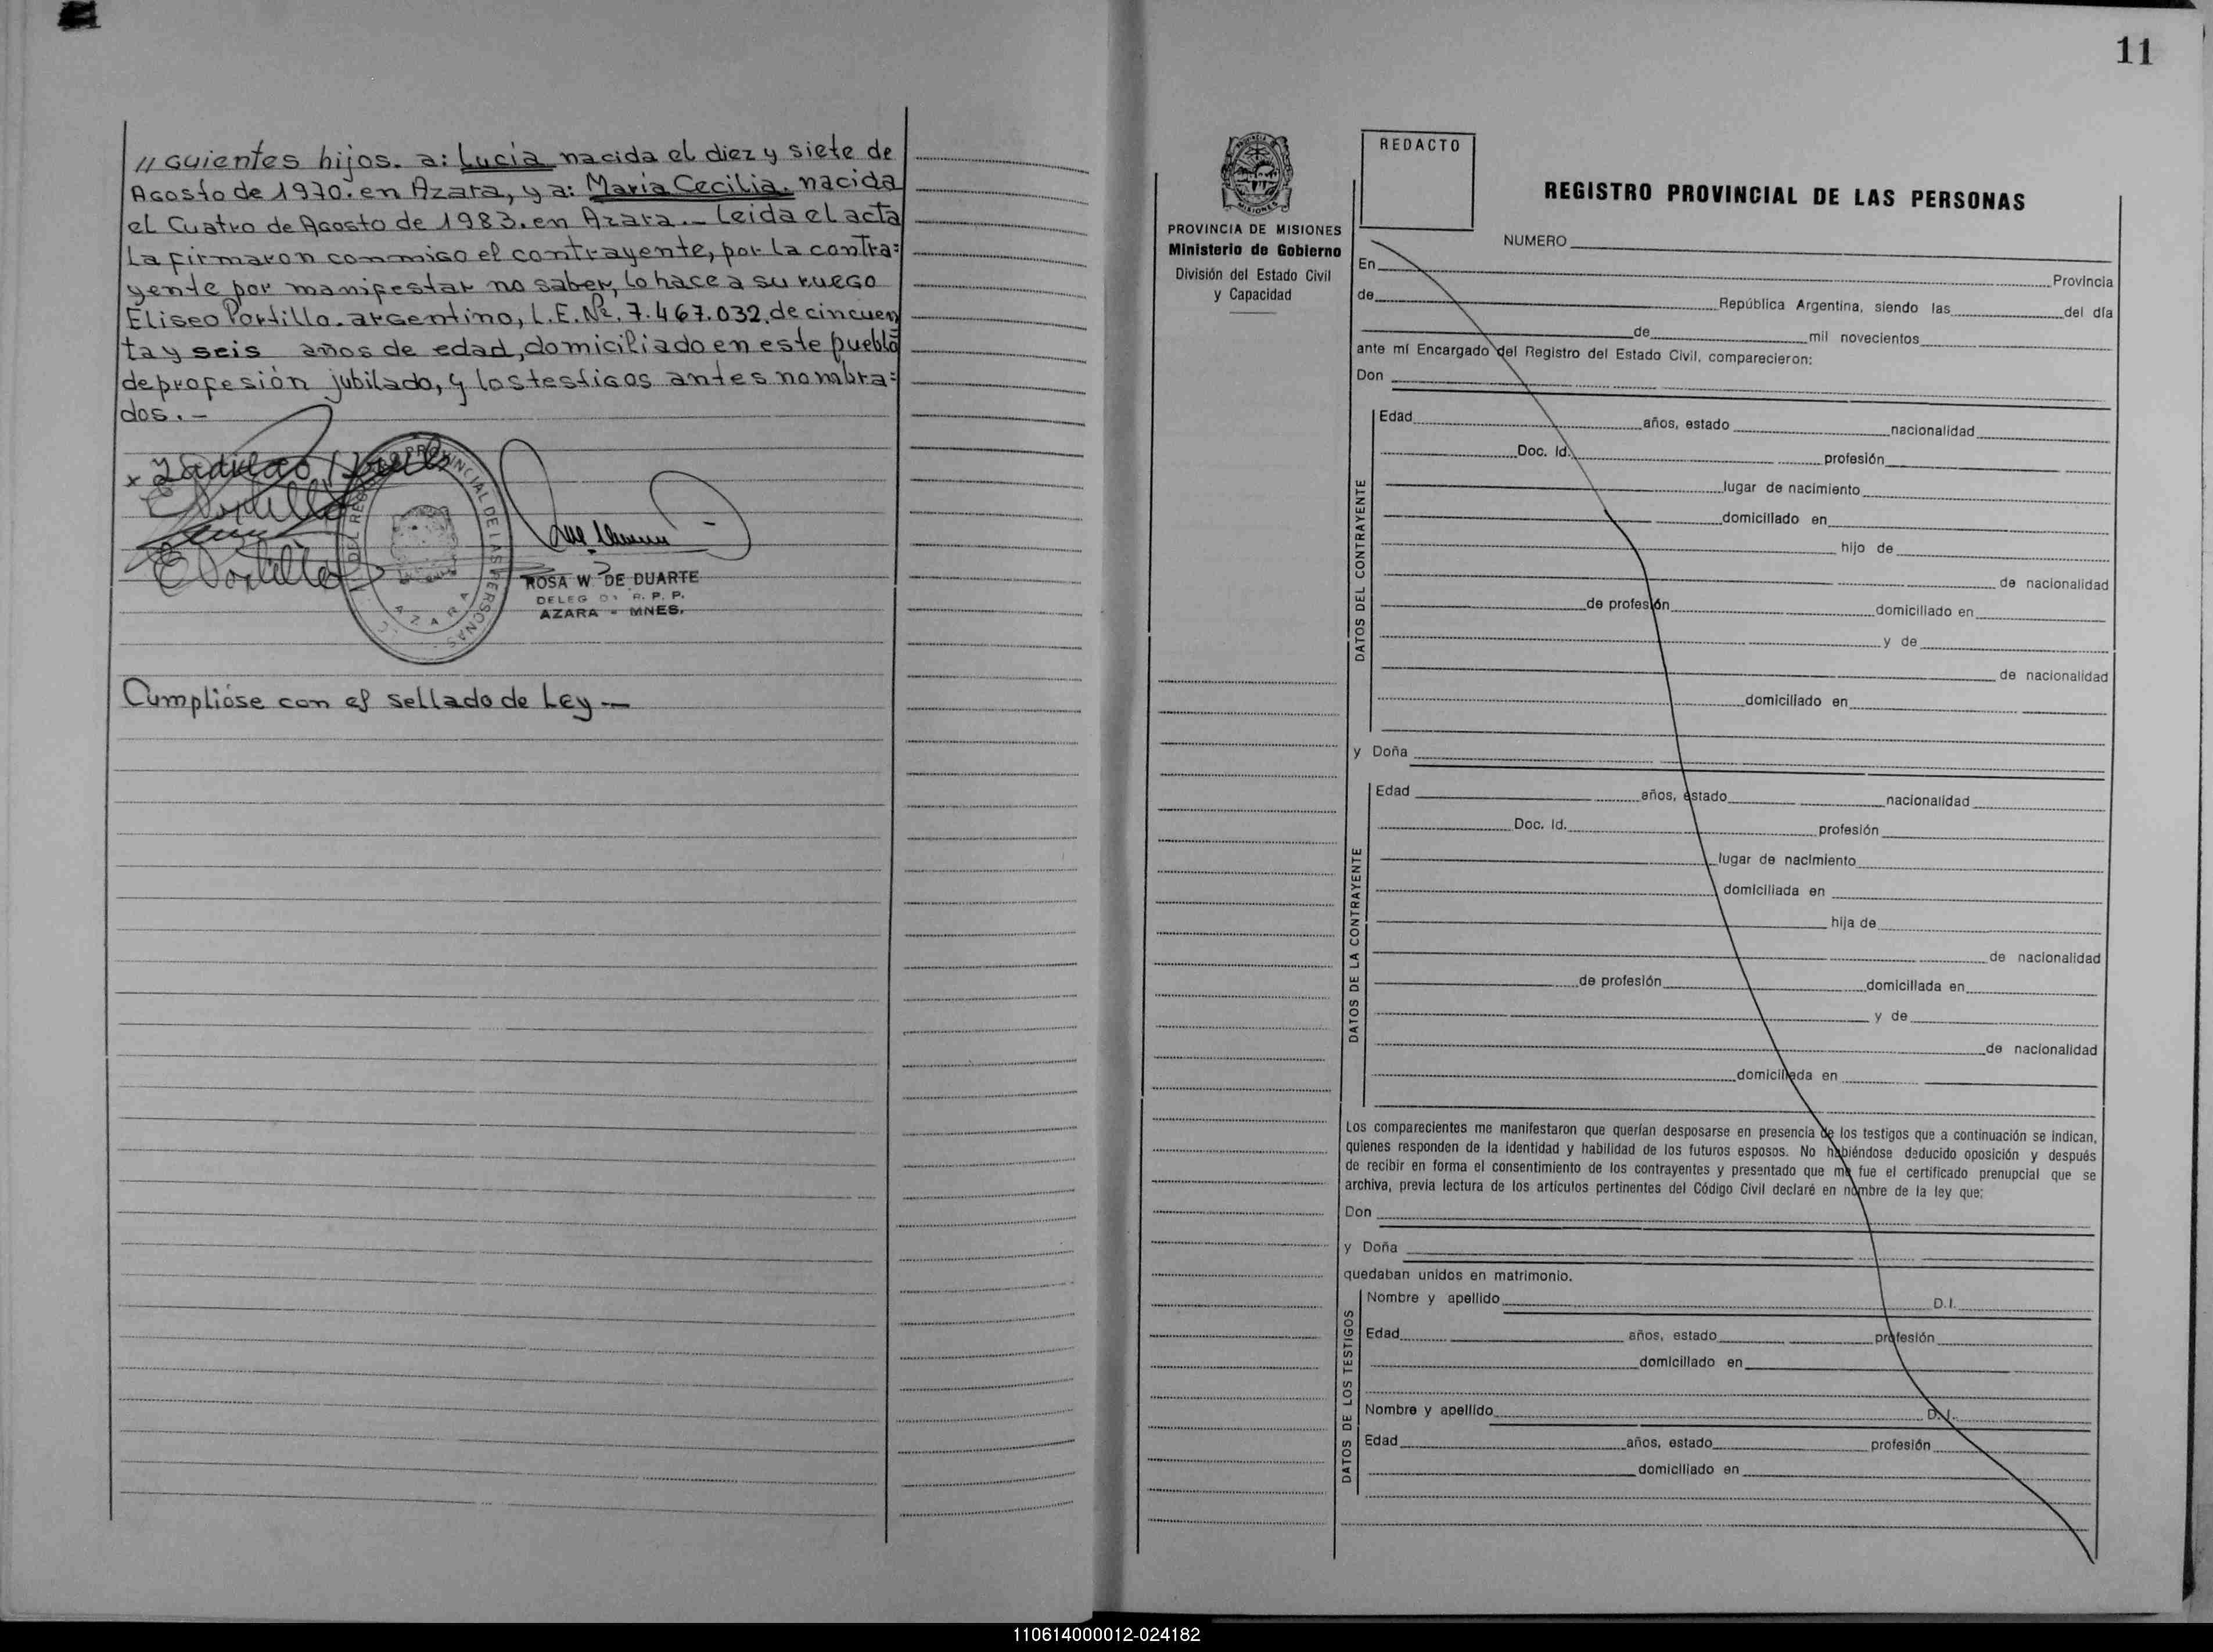 // guientes hijos. a: Lucia nacida el diez y siete de
Agosto de 1970. en Azara, y a: Maria Cecilia. nacida
el Cuatro de Agosto de 1983. en Azara._ Leida el acta
la firmaron conmigo el contrayente, por la contra=
yente por manifestar no saber, lo hace a su ruego
Eliseo Portillo. argentino, L.E. Nº. 7.467.032, de cincuen
ta y seis años de edad, domiciliado en este pueblo
de profesión jubilado, y los testigos antes nombra=
dos.-
E Portillo
E Portillo
PROVINCIAL DE LAS PERSONAS
AZARA
ROSA W. DE DUARTE
AZARA - MNES.
Cumplióse con el sellado de Ley -
11
PROVINCIA DE MISIONES
Ministerio de Gobierno
División del Estado Civil
y Capacidad
REDACTO
REGISTRO PROVINCIAL DE LAS PERSONAS
NUMERO
En Provincia
de República Argentina, siendo las del día
de mil novecientos
ante mí Encargado del Registro del Estado Civil, comparecieron:
Don
DATOS DEL CONTRAYENTE
Edad años, estado nacionalidad
Doc. Id. profesión
lugar de nacimiento
domiciliado en
hijo de
de nacionalidad
de profesión domiciliado en
y de
de nacionalidad
domiciliado en
y Doña
DATOS DE LA CONTRAYENTE
Edad años, estado nacionalidad
Doc. Id. profesión
lugar de nacimiento
domiciliada en
hija de
de nacionalidad
de profesión domiciliada en
y de
de nacionalidad
domiciliada en
Los comparecientes me manifestaron que querían desposarse en presencia de los testigos que a continuación se indican,
quienes responden de la identidad y habilidad de los futuros esposos. No habiéndose deducido oposición y después
de recibir en forma el consentimiento de los contrayentes y presentado que me fue el certificado prenupcial que se
archiva, previa lectura de los artículos pertinentes del Código Civil declaré en nombre de la ley que:
Don
y Doña
quedaban unidos en matrimonio.
DATOS DE LOS TESTIGOS
Nombre y apellido D.I.
Edad años, estado profesión
domiciliado en
Nombre y apellido D.I.
Edad años, estado profesión
domiciliado en
110614000012-024182